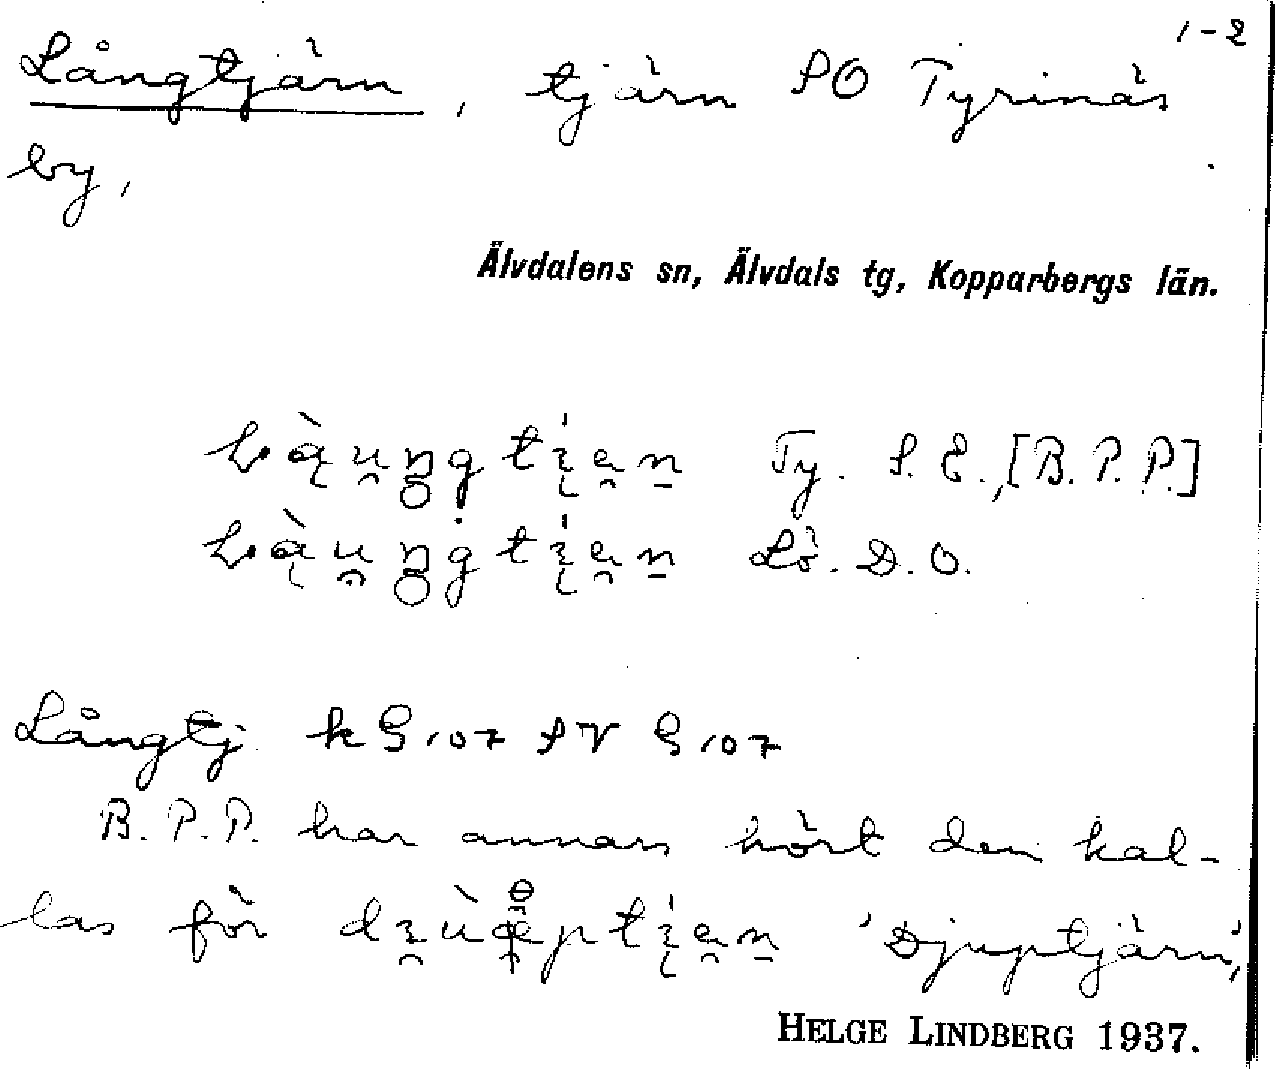 1-2
Långtjärn, tjärn SO Tyrinäs
by,
Älvdalens sn, Älvdals tg, Kopparbergs län.
Ty. S. E., [B. P. P.]
Lö. D. O.
Långtj. k G 107 SV G 107
B. P. P. har annars hört den kal-
las för 'Djuptjärn',
HELGE LINDBERG 1937.